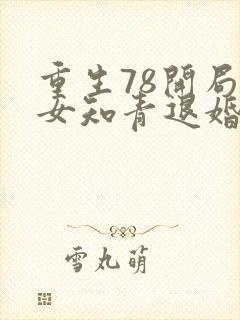 重生78開局
女知青退婚
雪丸萌